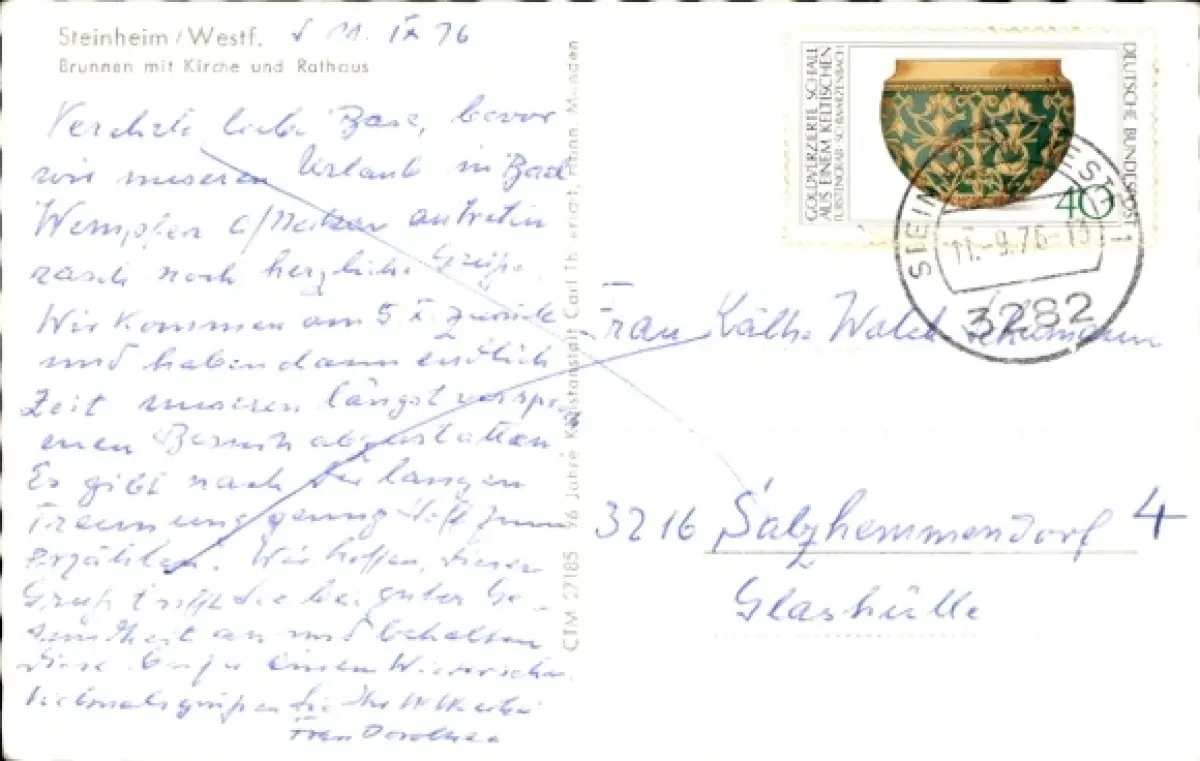 Steinheim / Westf.
11. IX 76
Brunnen mit Kirche und Rathaus
Verehrte liebe Base, bevor
wir unseren Urlaub in Bad
Wimpfen a/Neckar antreten
rasch noch herzliche Grüße.
Wir kommen am 5. X. zurück
und haben dann endlich
Zeit unseren längst verspro
enen Besuch abzustatten
Es gibt nach der langen
Trennung genug Stoff zum
erzählen. Wir hoffen, dieser
Gruß trifft Sie bei guter Ge
sundheit an und behalten
diese bis zu einem Wiedersehn.
Vielmals grüßen Sie Ihr
Frau Dorothea
CTM 27185 96 Jahre Kunstanstalt Carl Th. Hann. Münden
GOLDVERZIERTE SCHALE
AUS EINEM KELTISCHEN
FÜRSTENGRAB SCHWARZENBACH
DEUTSCHE BUNDESPOST
40
STEINHEIM WESTF 1
11.-9.76-13
3282
Frau Käthe
3216 Salzhemmendorf 4
Glashütte